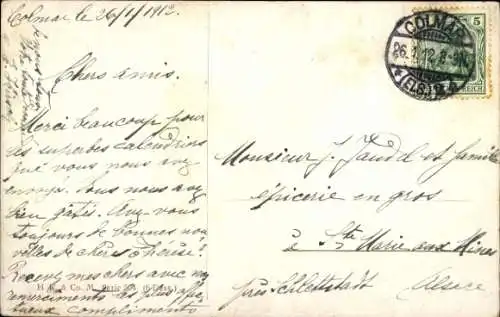 Colmar le 26/1/1912.
Chers amis.
Merci beaucoup pour
les superbes calendriers
que vous nous avez
envoyés. Vous nous avez
bien gâtés. Avez-vous
toujours de bonnes nou
velles de chère Thérèse?
Recevez mes chers avec nos
remerciements les plus affec
tueux compliments
H. & Co. M. Serie 208 (6 Dess.)
COLMAR
26.1.12. 8-9N.
(ELS.)
5
REICH
Monsieur J. Jaudel et famille
épicerie en gros
à Ste Marie aux Mines
près Schlettstadt
Alsace